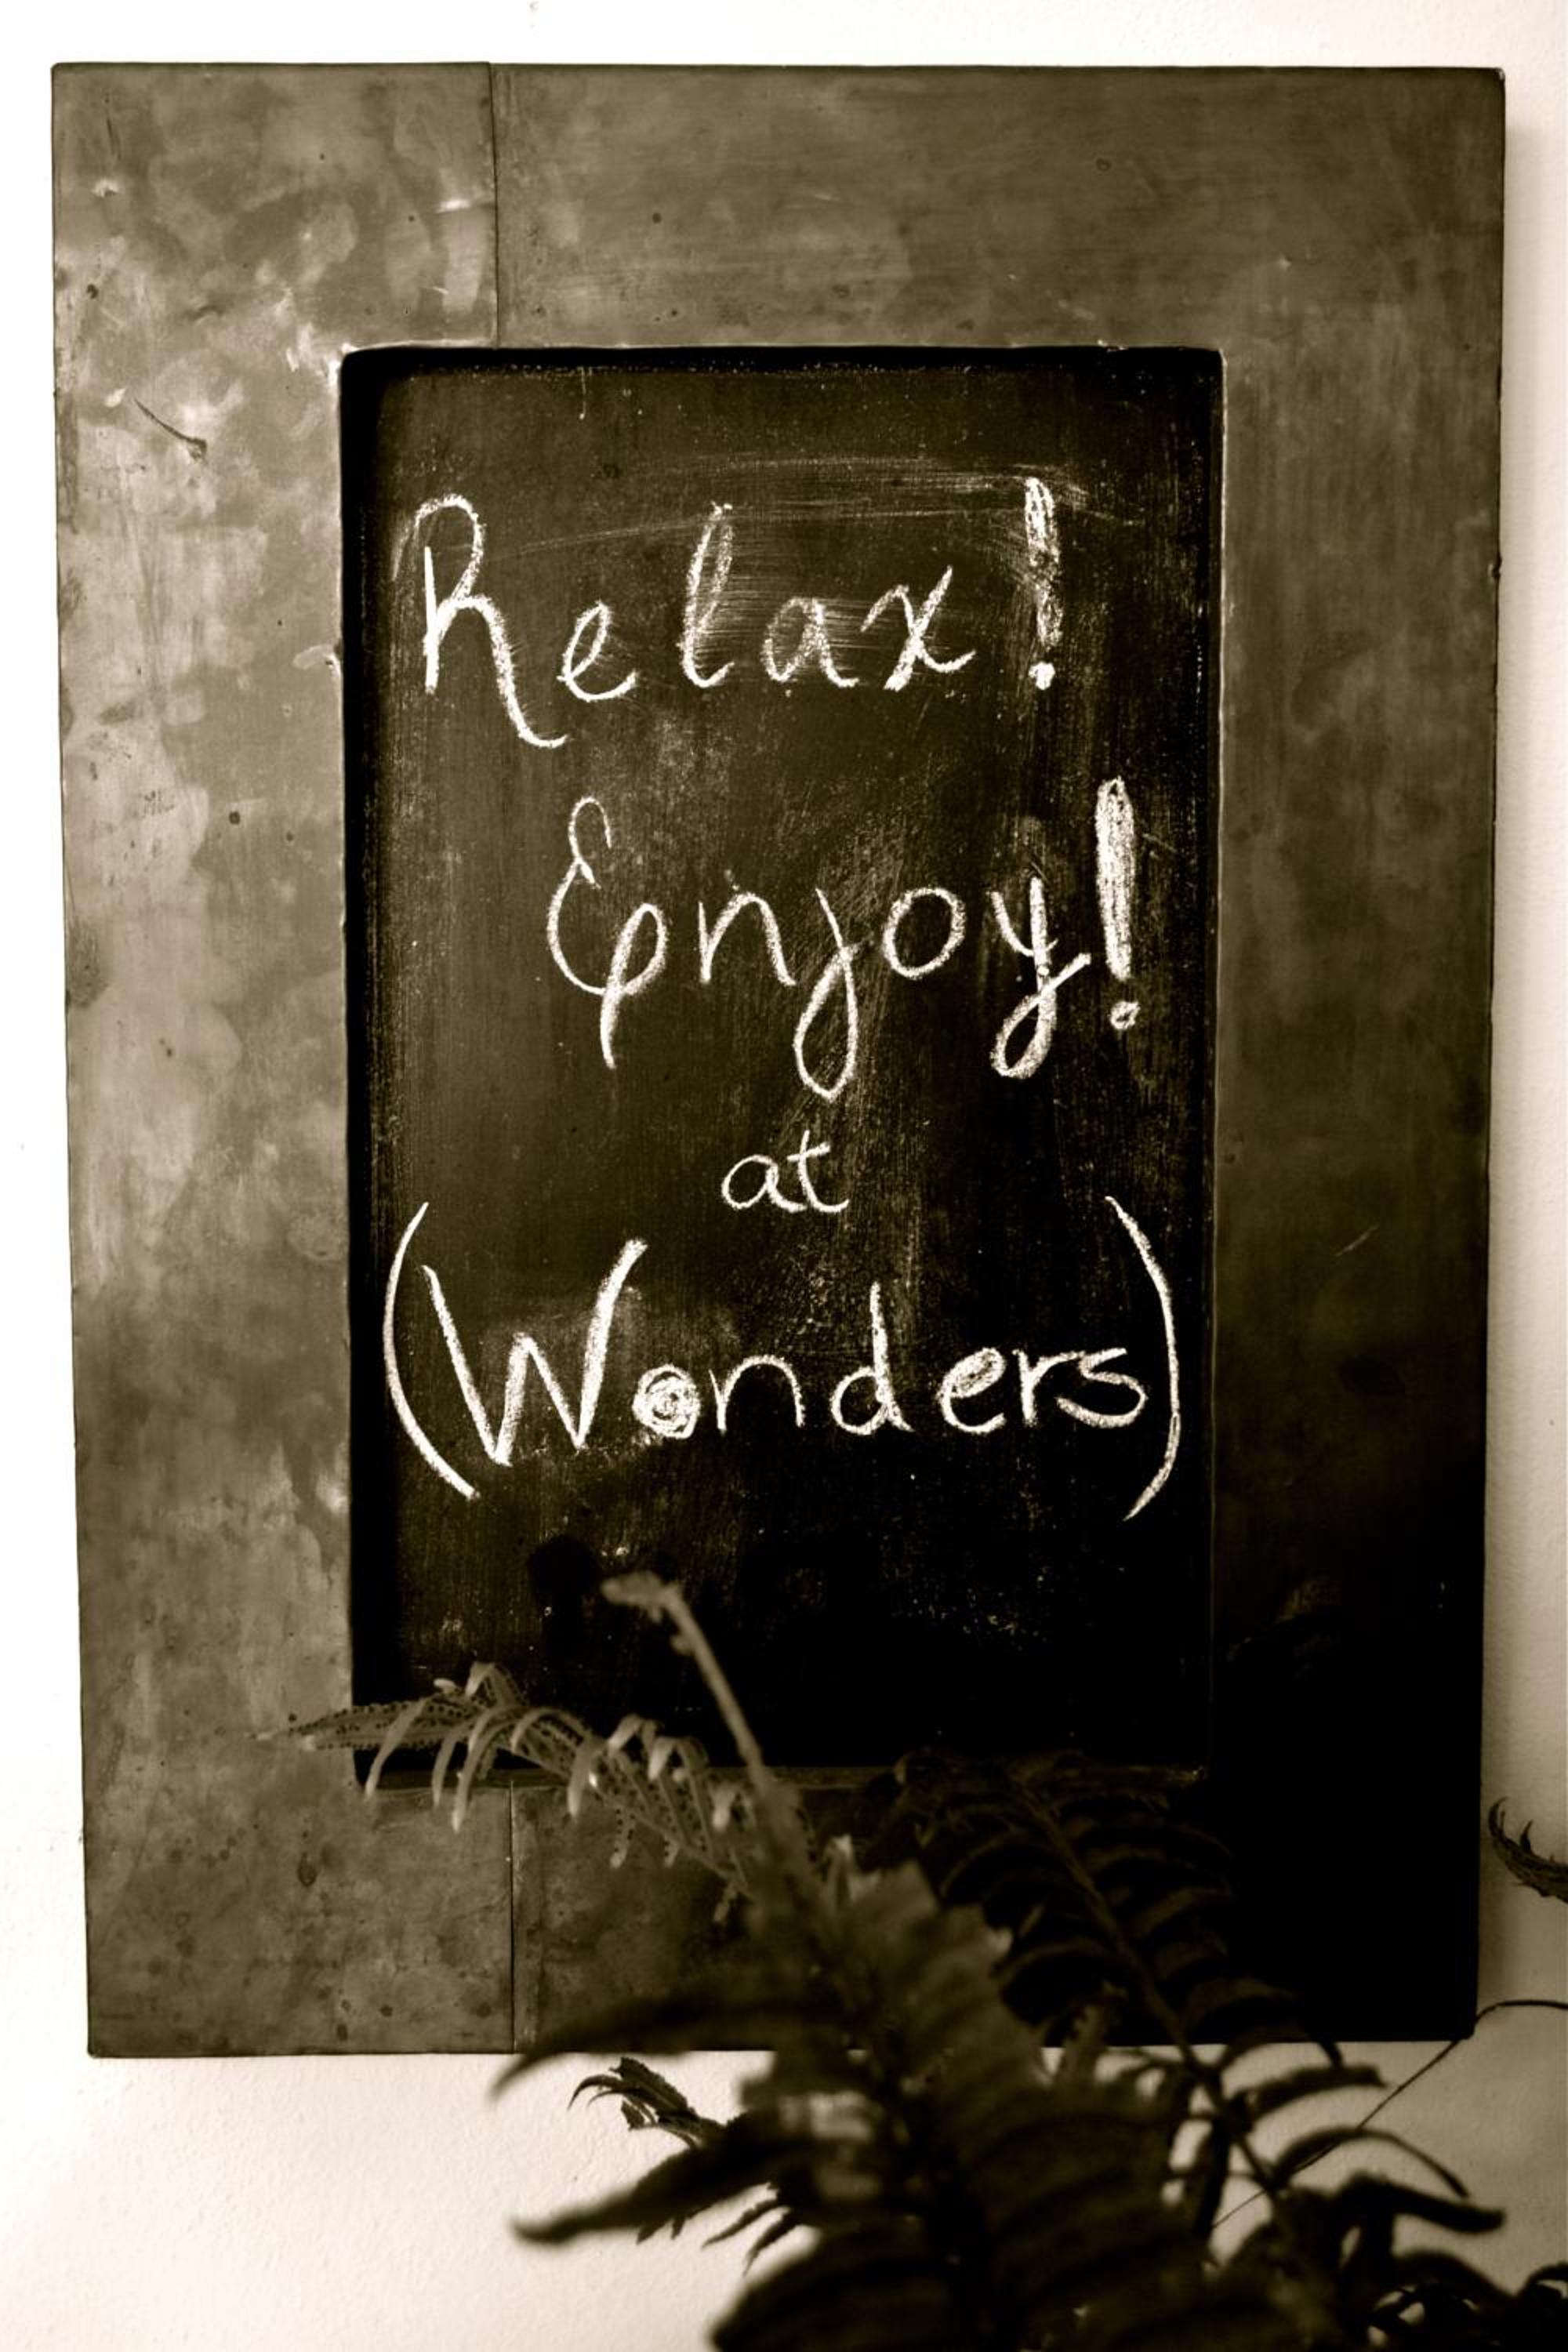 Relax!
Enjoy!
at
(Wonders)